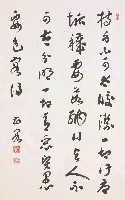 持身不可太皎潔一切污辱
垢穢要茹納得與人不
可太分明一切善惡賢愚
要包容得